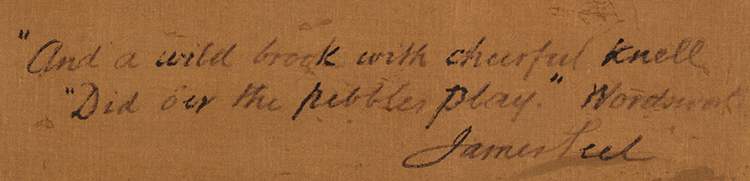 "And a wild brook with cheerful knell
"Did o'er the pebbles play." Wordswort
James Peel